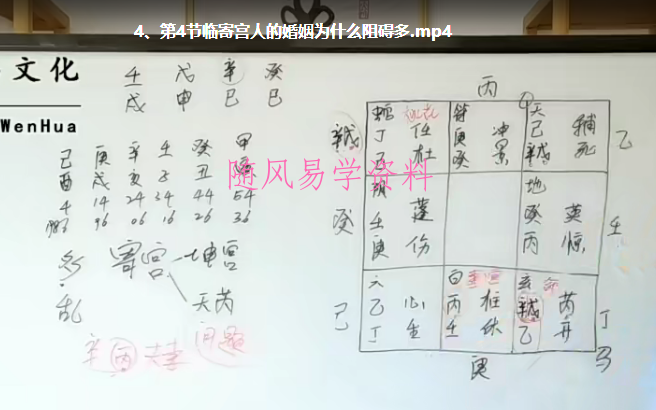 4、第4节临寄宫人的婚姻为什么阻碍多.mp4
文化
WenHua
壬 戊 辛 癸
戌 申 巳 巳
己 庚 辛 壬 癸 甲
酉 戌 亥 子 丑
4 14 24 34 44 54
1986 96 06 16 26 36
随风易学资料
寄宫 坤宫
乱 天芮
辛 丙 问题
丙
任 符 冲 天 辅
丁 杜 庚 景 己 死 乙
癸
蓬 地 英
癸 壬 伤 癸 惊 壬
庚 丙
六 心 白 柱 玄 芮
己 乙 生 丙 休 开 丁
丁 壬 乙 马
庚